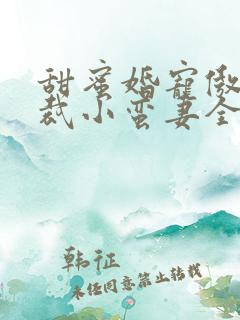 甜蜜婚宠傲
裁小蛮妻全
韩征
未经同意禁止转载